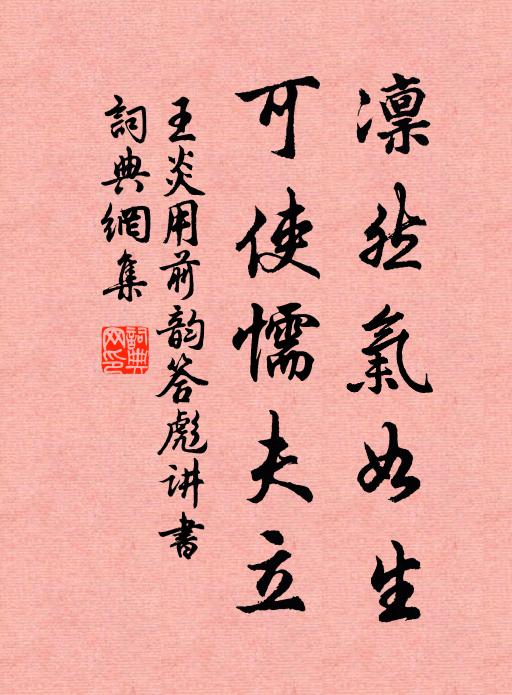 凛然氣如生
可使懦夫立
王炎用前韵答彪讲書
詞典網集
詞典網印